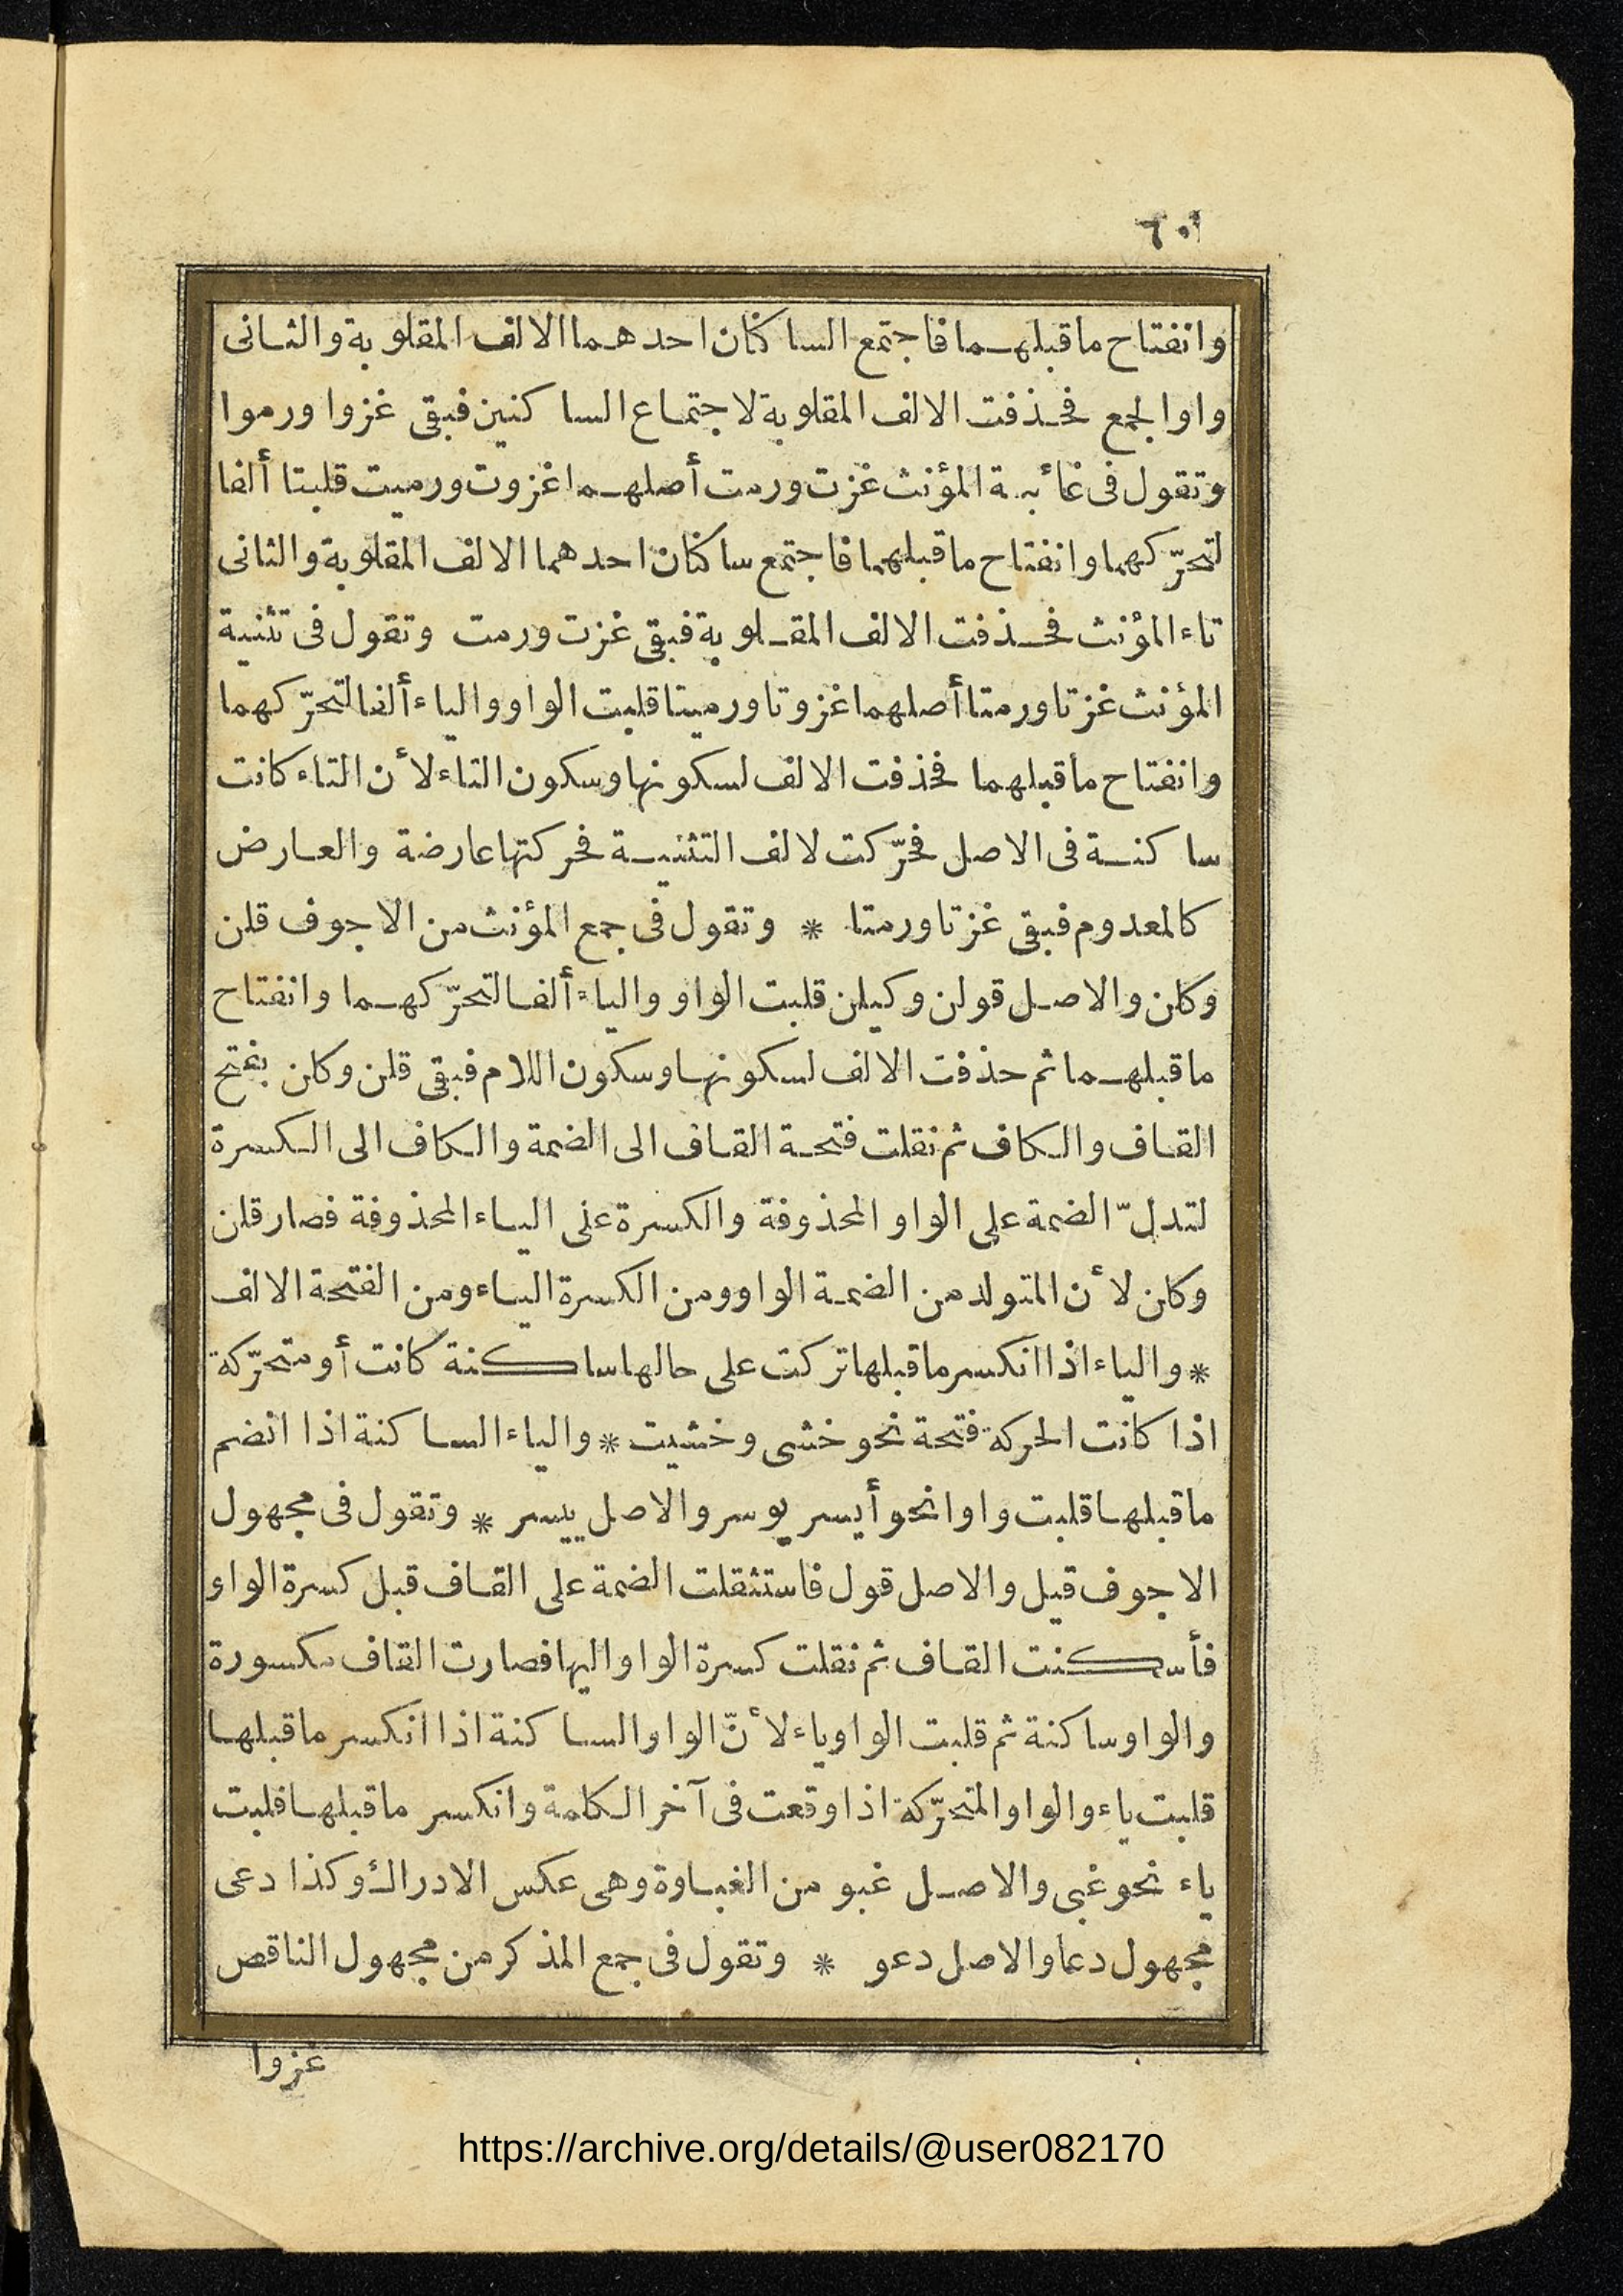 وانفتاح ماقبلهما فاجتمع الساكنان احدهما الالف المقلوبة والثانى
واوالجمع فحذفت الالف المقلوبة لاجتماع الساكنين فبقى غزوا ورموا
وتقول فى غائبة المؤنث غزت ورمت أصلهما غزوت ورميت قلبتا ألفا
لتحرّكهما وانفتاح ماقبلهما فاجتمع ساكنان احدهما الالف المقلوبة والثانى
تاء المؤنث فحذفت الالف المقلوبة فبقى غزت ورمت وتقول فى تثنية
المؤنث غزتا ورمتا أصلهما غزوتا ورميتا قلبت الواو والياء ألفا لتحرّكهما
وانفتاح ماقبلهما فحذفت الالف لسكونها وسكون التاء لأن التاء كانت
ساكنة فى الاصل فحرّكت لالف التثنية فحركتها عارضة والعارض
كالمعدوم فبقى غزتا ورمتا * وتقول فى جمع المؤنث من الاجوف قلن
وكلن والاصل قولن وكيلن قلبت الواو والياء ألفا لتحرّكهما وانفتاح
ماقبلهما ثم حذفت الالف لسكونها وسكون اللام فبقى قلن وكلن بفتح
القاف والكاف ثم نقلت فتحة القاف الى الضمة والكاف الى الكسرة
لتدلّ الضمة على الواو المحذوفة والكسرة على الياء المحذوفة فصار قلن
وكلن لأن المتولد من الضمة الواو ومن الكسرة الياء ومن الفتحة الالف
* والياء اذا انكسر ماقبلها تركت على حالها ساكنة كانت أو متحرّكة
اذا كانت الحركة فتحة نحو خشى وخشيت * والياء الساكنة اذا انضم
ماقبلها قلبت واوا نحو أيسر يوسر والاصل ييسر * وتقول فى مجهول
الاجوف قيل والاصل قول فاستثقلت الضمة على القاف قبل كسرة الواو
فأسكنت القاف ثم نقلت كسرة الواو اليها فصارت القاف مكسورة
والواو ساكنة ثم قلبت الواو ياء لأنّ الواو الساكنة اذا انكسر ماقبلها
قلبت ياء والواو المتحرّكة اذا وقعت فى آخر الكلمة وانكسر ماقبلها قلبت
ياء نحو غبى والاصل غبو من الغباوة وهى عكس الادراك وكذا دعى
مجهول دعا والاصل دعو * وتقول فى جمع المذكر من مجهول الناقص
غزوا
https://archive.org/details/@user082170